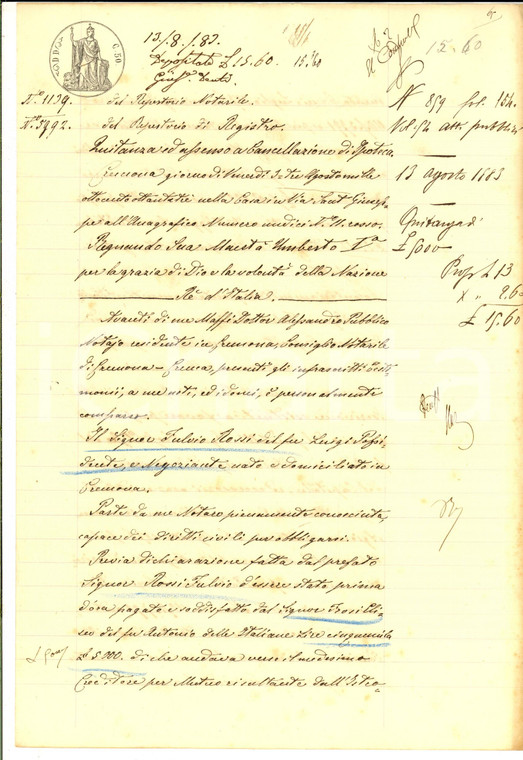 13/8/83
Depositate £ 15.60
15.60
15.60
N.° 1139. del Repertorio Notarile.
N.° 3992. del Repertorio di Registro.
N 859 fol. 134
Vol. 52 atti pubblici
Quitanza ed assenso a Cancellazione di Ipoteca.
Cremona giorno di Venerdì 3. tre Agosto mille
ottocento ottantatre nella Casa in Via Sant Giusep=
pe all'Anagrafico Numero undici N.° 11. rosso.
Regnando Sua Maestà Umberto I.°
per la grazia di Dio e la volontà della Nazione
Rè d'Italia.
13 agosto 1883
Quitanza di
£ 5000
Prop £ 13
X " 2.60
£ 15.60
Avanti di me Massi Dottor Alessandro Pubblico
Notajo residente in Cremona, Consiglio Notarile
di Cremona - Crema, presenti gli infrascritti testi=
monii, a me noti, ed idonei, è personalmente
comparso.
Il Signor Fulvio Rossi del fu Luigi Possi=
dente, e Negoziante, nato e domiciliato in
Cremona.
Parte da me Notaro pienamente conosciuta,
capace dei diritti civili per obbligarsi.
Previa dichiarazione fatta dal prefato
Signor Rossi Fulvio d'essere stato prima
d'ora pagato e soddisfatto dal Signor
del fu Antonio delle Italiane Lire cinquemila
£ 5000. di che andava verso il medesimo
Creditore per Mutuo risultante dall'Istro=